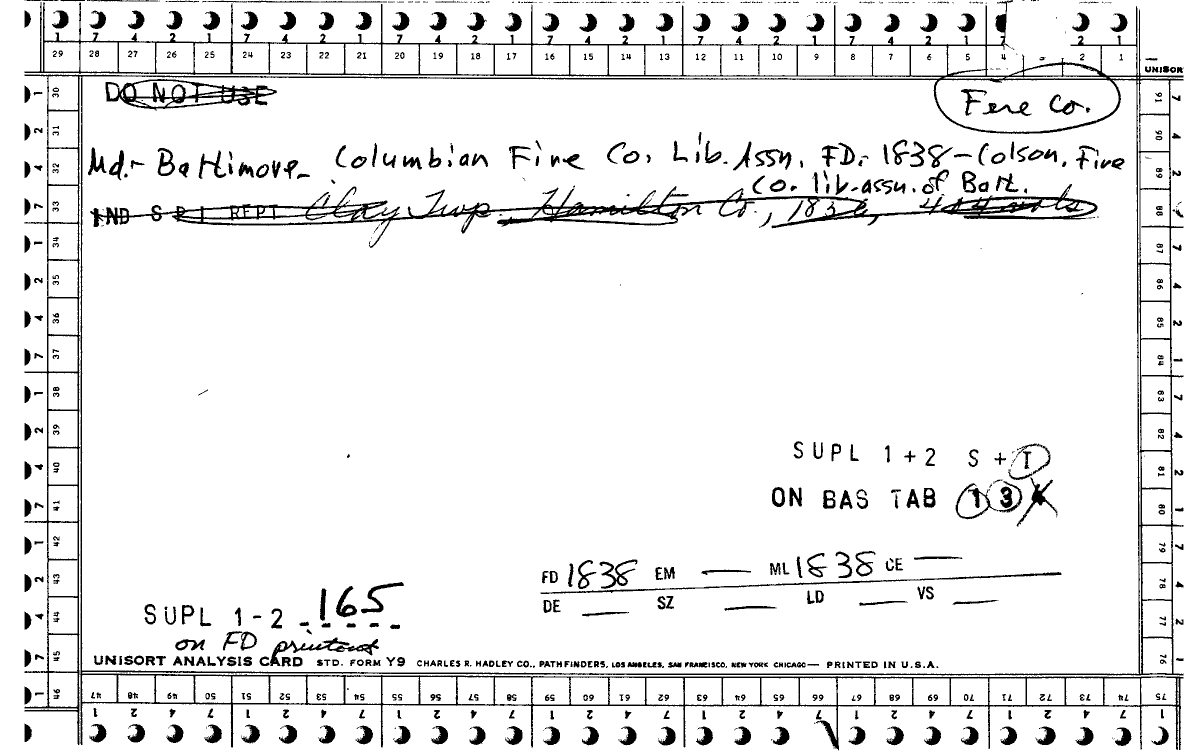 1 7 4 2 1 7 4 2 1 7 4 2 1 7 4 2 1 7 4 2 1 7 4 2 1 7 2 1
29 28 27 26 25 24 23 22 21 20 19 18 17 16 15 14 13 12 11 10 9 8 7 6 5 4 2 1
UNISORT
DO NOT USE
Fire Co.
Md.- Baltimore- Columbian Fire Co. Lib. Assn. FD. 1838-Colson. Fire
Co. lib. assn. of Balt.
IND S RPT REPT Clay Twp. Hamilton Co., 404 vols
SUPL 1+2 S + I
ON BAS TAB 1 3 4
FD 1838 EM — ML 1838 CE —
DE — SZ — LD — VS —
SUPL 1-2 165
on FD printout
UNISORT ANALYSIS CARD STD. FORM Y9 CHARLES R. HADLEY CO., PATHFINDERS, LOS ANGELES, SAN FRANCISCO, NEW YORK CHICAGO— PRINTED IN U.S.A.
30 31 32 33 34 35 36 37 38 39 40 41 42 43 44 45 46
1 2 4 7 1 2 4 7 1 2 4 7 1 2 4 7 1
91 90 89 88 87 86 85 84 83 82 81 80 79 78 77 76
47 48 49 50 51 52 53 54 55 56 57 58 59 60 61 62 63 64 65 66 67 68 69 70 71 72 73 74 75
1 2 4 7 1 2 4 7 1 2 4 7 1 2 4 7 1 2 4 7 1 2 4 7 1 2 4 7 1